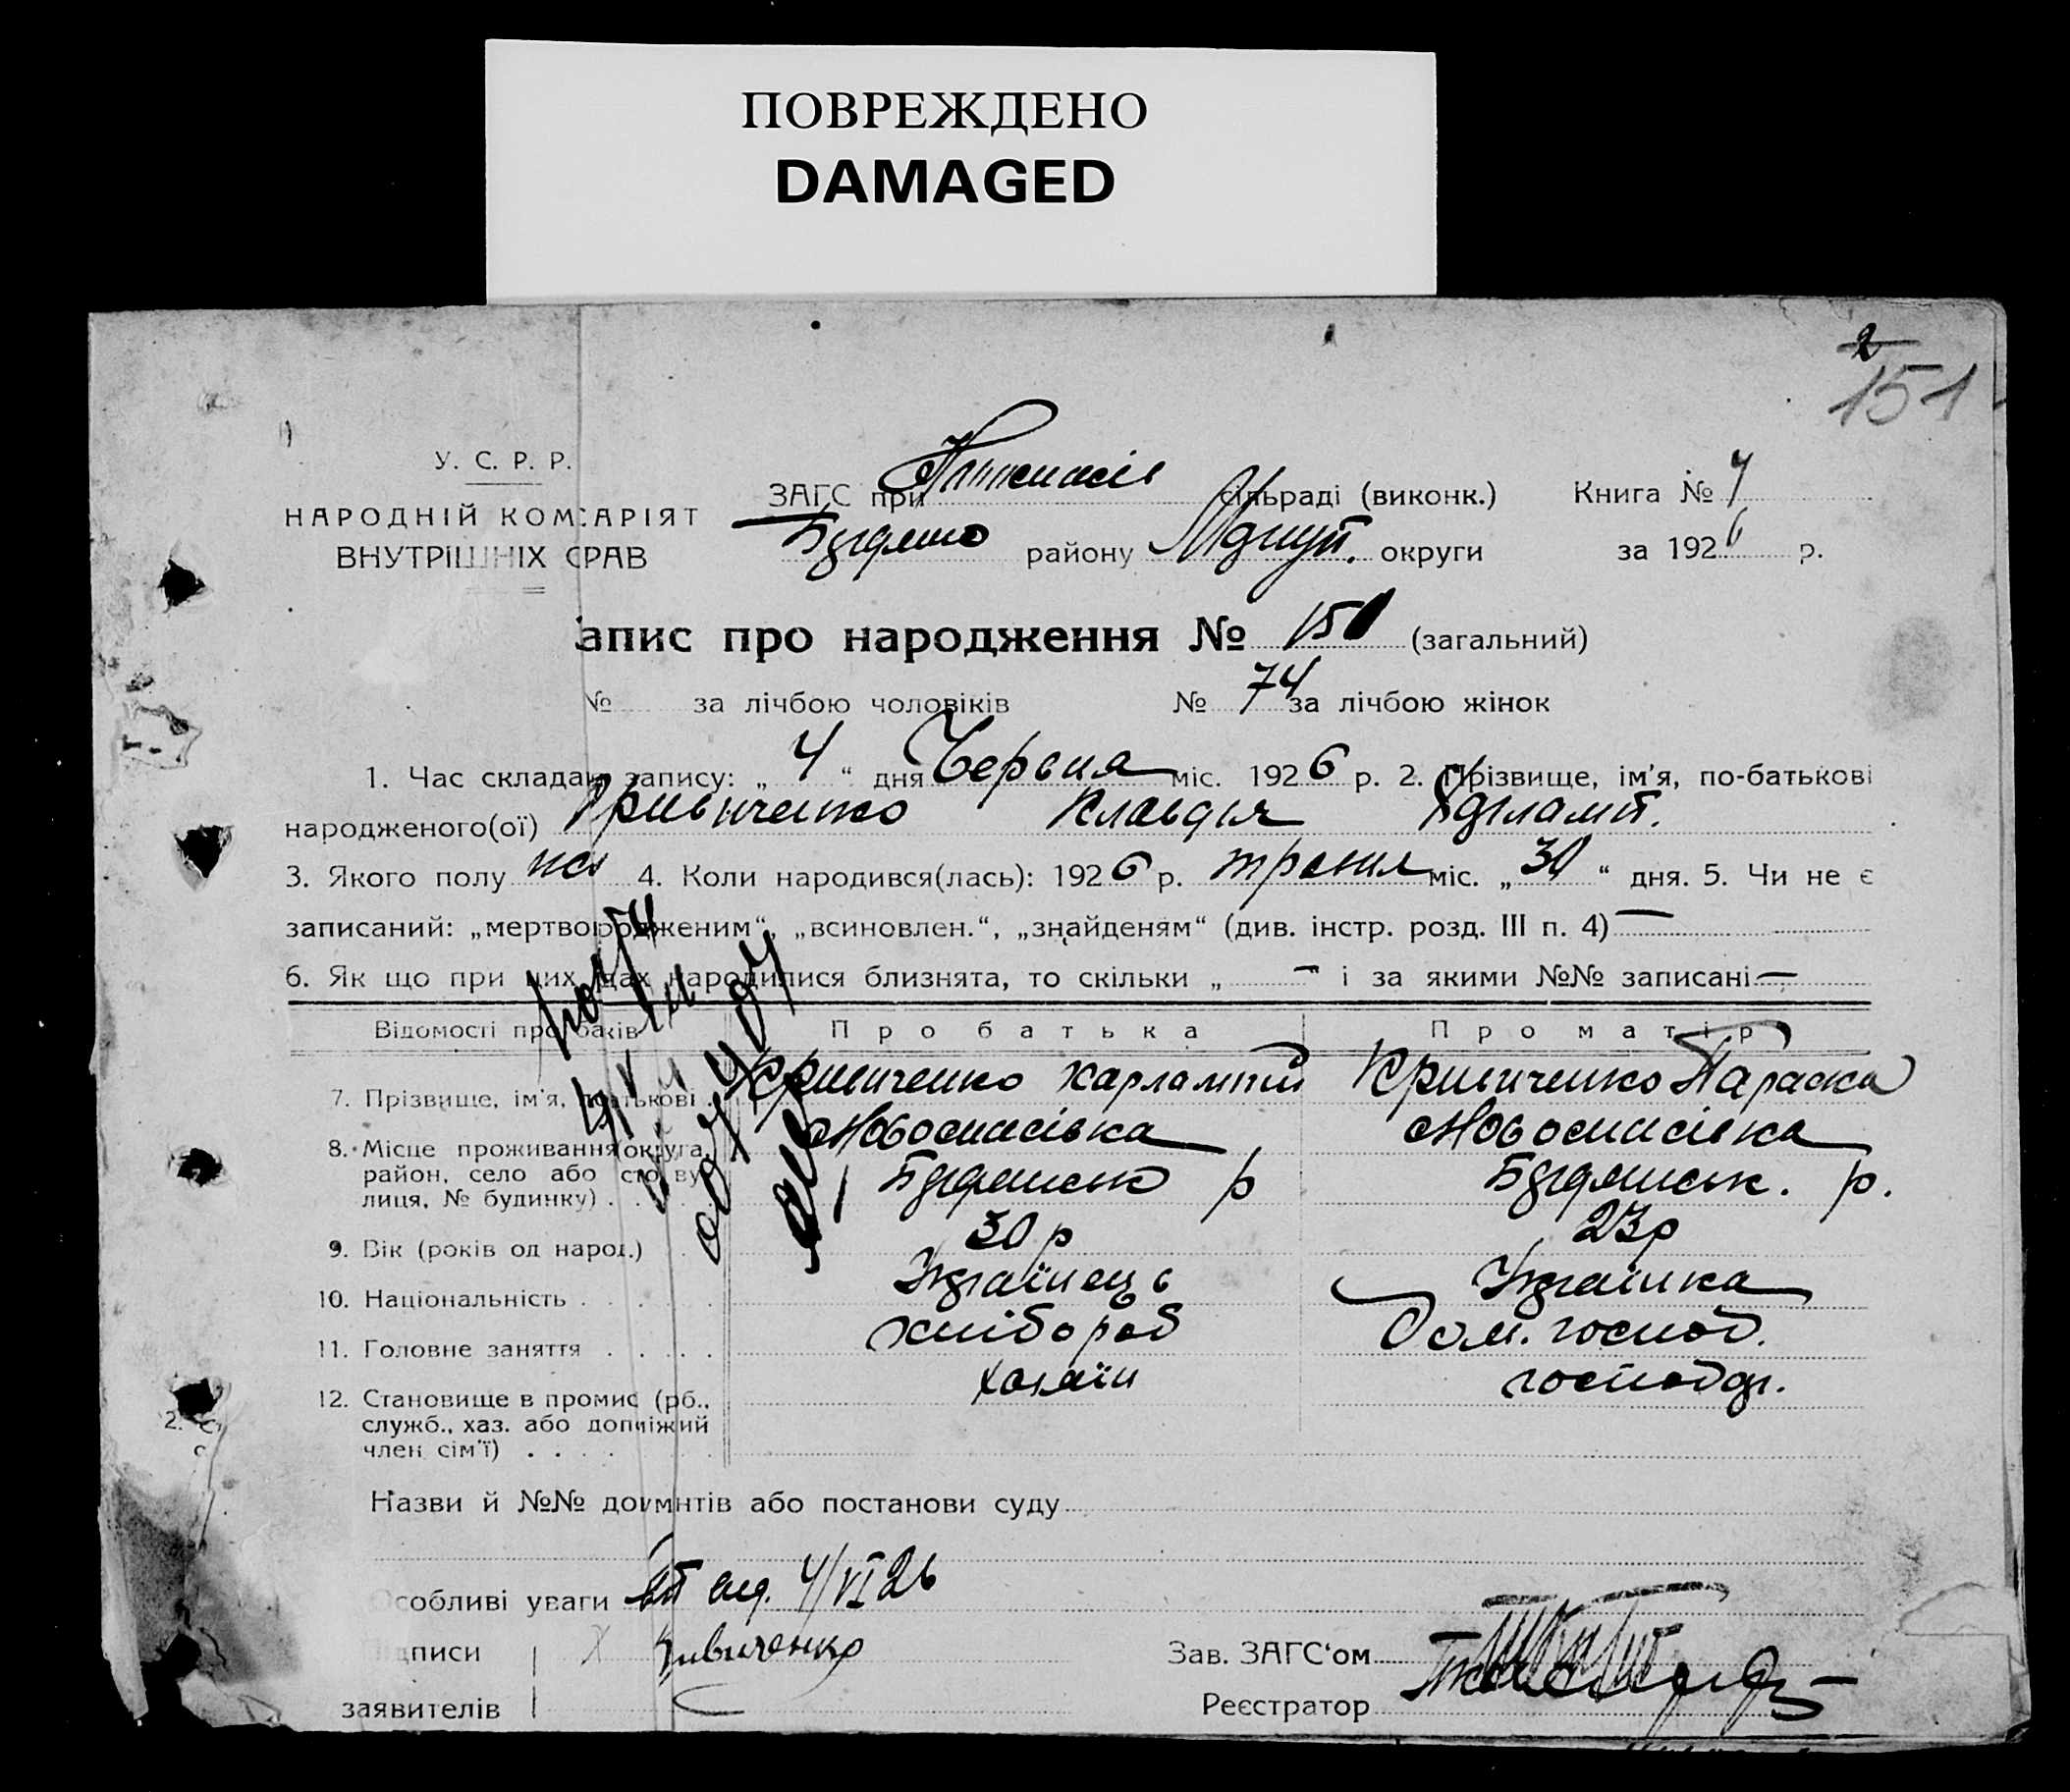 ПОВРЕЖДЕНО
DAMAGED
2
151
У. С. Р. Р.
НАРОДНІЙ КОМ АРІЯТ
ВНУТРІШНІХ СРАВ
ЗАГС при сільраді (виконк.) Книга №
району округи за 1926 р.
апис про народження № 151 (загальний)
№ за лічбою чоловіків № 74 за лічбою жінок
1. Час складан запису: „ 4 “ дня Червня міс. 1926 р. 2. Прізвище, ім’я, по-батькові
народженого(ої) Кривиченко Клавдія
3. Якого полу 4. Коли народився(лась): 1926 р. травня міс. „ 30 “ дня. 5. Чи не є
записаний: „мертвородженим“, „всиновлен.“, „знайденям“ (див. інстр. розд. III п. 4) —
6. Як що при цих щах народилися близнята, то скільки „ — “ і за якими №№ записані —
Відомості про баків Про батька Про матір
7. Прізвище, ім’я, по-батькові Кривиченко Харлампій Кривиченко Параска
8. Місце проживання (округа, Новоспасівка Новоспасівка
район, село або сто ву р р.
лиця, № будинку)
9. Вік (років од народ.) 30 р 23 р
10. Національність Українець Українка
11. Головне заняття хлібороб Дом. господ.
12. Становище в промис (рб., хазяїн господар.
служб., хаз. або допоміжий
член сім’ї)
Назви й №№ докмнтів або постанови суду
Особливі уваги 4/VI 26
дписи Кривиченко Зав. ЗАГС‘ом
заявителів Реєстратор